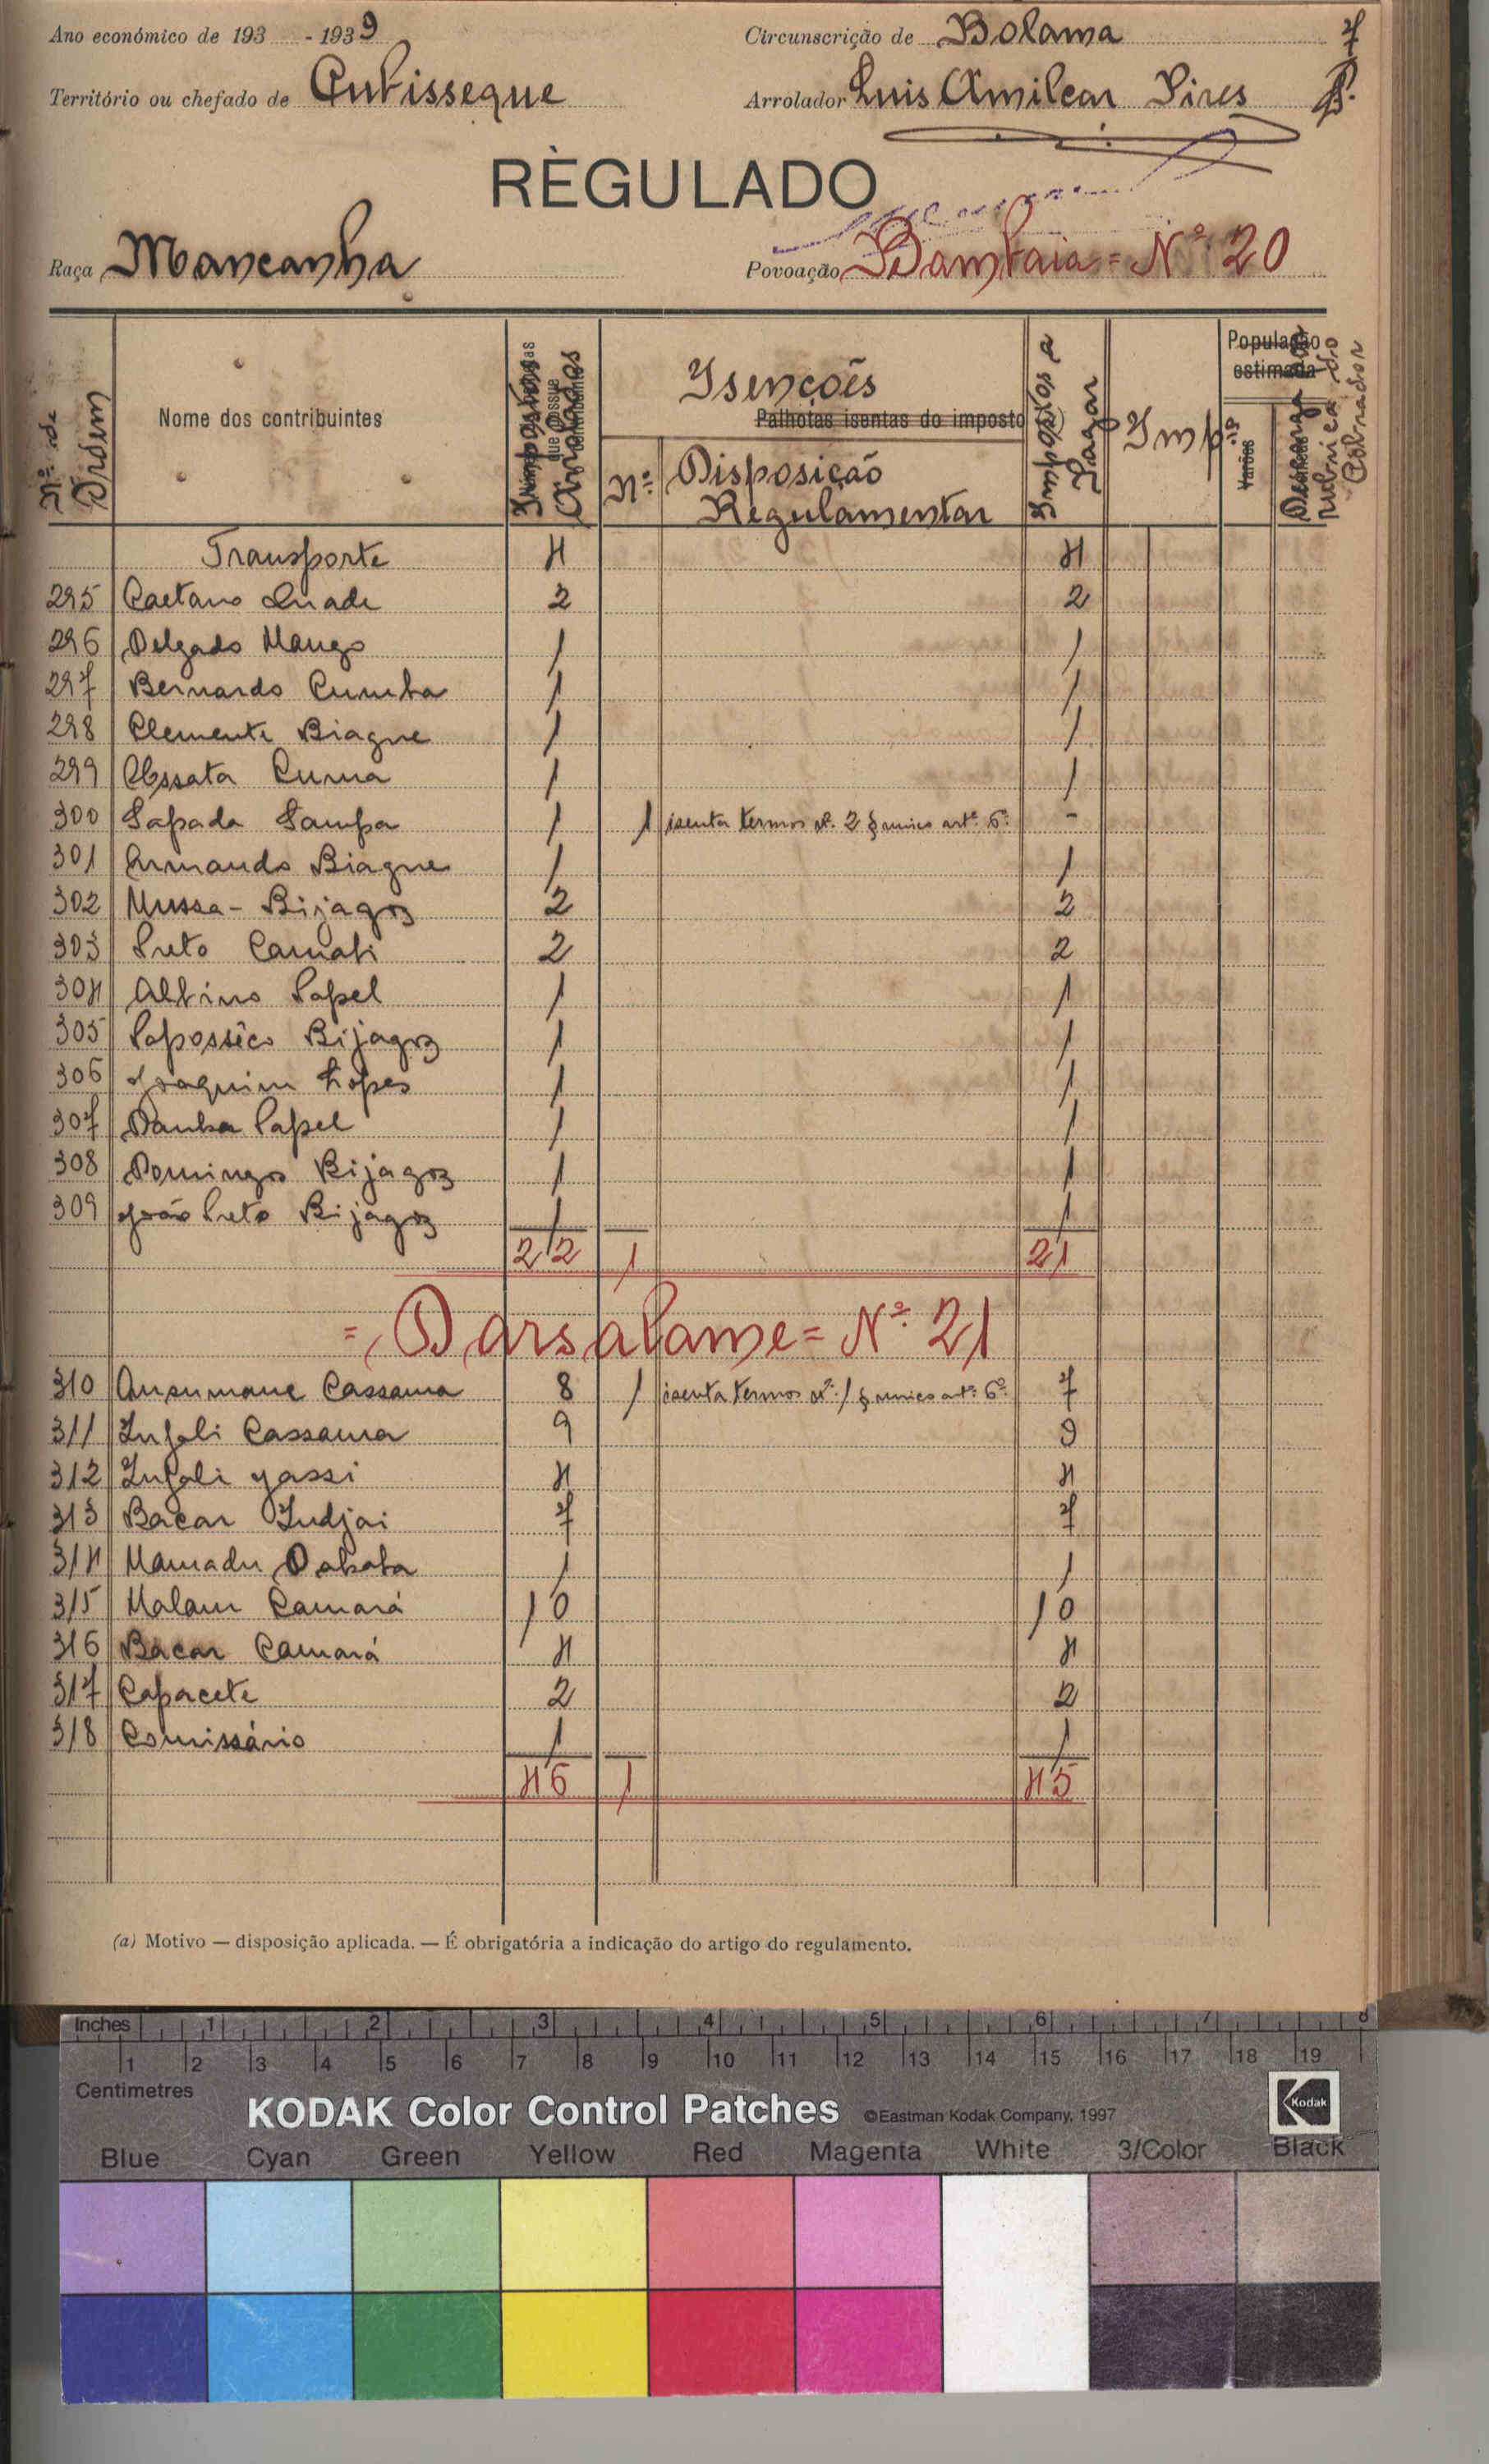 Ano económico de 193 - 1939 Circunscrição de Bolama 7
Território ou chefado de Cubisseque Arrolador Luis Amilcar Pires
RÈGULADO
Raça Mancanha Povoação Bambaia = Nº 20
Nº de Ordem Nome dos contribuintes Impostos Arrolados Isenções Impostos a Pagar Imp. População estimada
Palhotas isentas do imposto (a)
Nº Disposição Regulamentar Varões rubrica do Cobrador
Transporte 4 4
295 Caetano 2 2
296 Delgado Mango 1 1
297 Bernardo Cumba 1 1
298 Clemente Biague 1 1
299 Assata Cuma 1 1
300 Sápada Sampa 1 1 isenta termos nº. 2 § unico artº. 6º. -
301 Armando Biague 1 1
302 Mussa - Bijagoz 2 2
303 Preto Camati 2 2
304 Albino Papel 1 1
305 Papossêco Bijagoz 1 1
306 Joaquim Lopes 1 1
307 Papel 1 1
308 Domingos Bijagoz 1 1
309 João Preto Bijagoz 1 1
22 1 21
= Darsalame = Nº. 21
310 Ansumane Cassama 8 1 isenta termos nº. 1 § unico artº. 6º. 7
311 Infali Cassama 9 9
312 Infali Jassi 4 4
313 Bacar Indjai 7 7
314 Mamadu Dababa 1 1
315 Malam Camará 10 10
316 Bacar Camará 4 4
317 Capacete 2 2
318 Comissário 1 1
46 1 45
(a) Motivo — disposição aplicada. — É obrigatória a indicação do artigo do regulamento.
Inches 1 2 3 4 5 6 7 8
1 2 3 4 5 6 7 8 9 10 11 12 13 14 15 16 17 18 19
Centimetres
KODAK Color Control Patches ©Eastman Kodak Company, 1997 Kodak
Blue Cyan Green Yellow Red Magenta White 3/Color Black